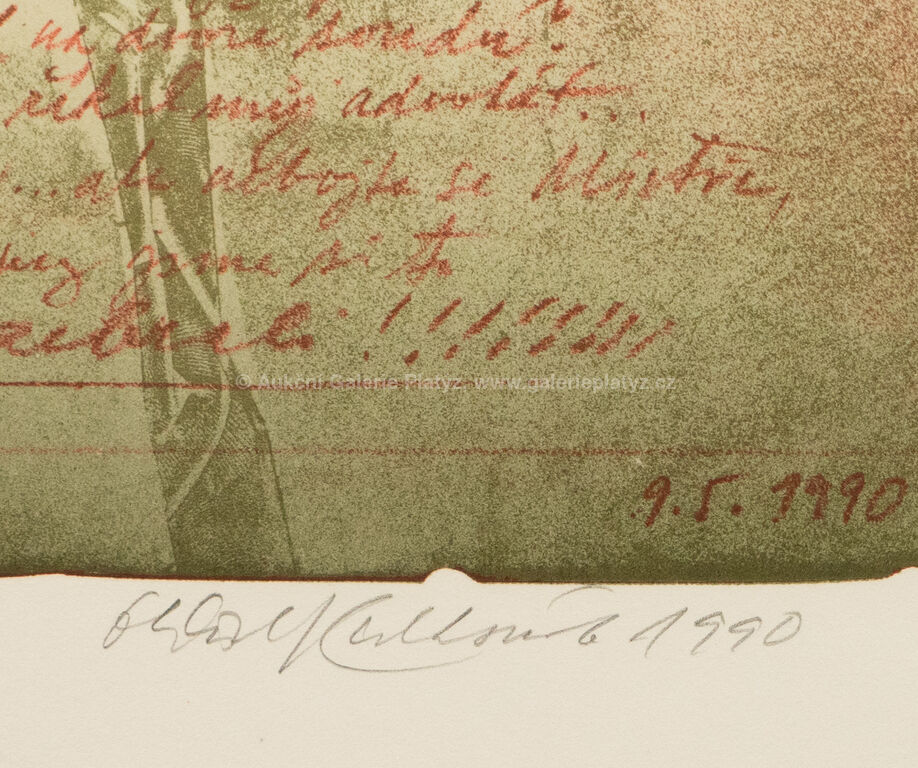 na dvoře soudu?
řekl můj advokát...
...ale nebojte se Mistře,
jsme si to
!!!!!!!!!
© Aukční Galerie Platýz, www.galerieplatyz.cz
9.5.1990
Oldřich Kulhánek 1990